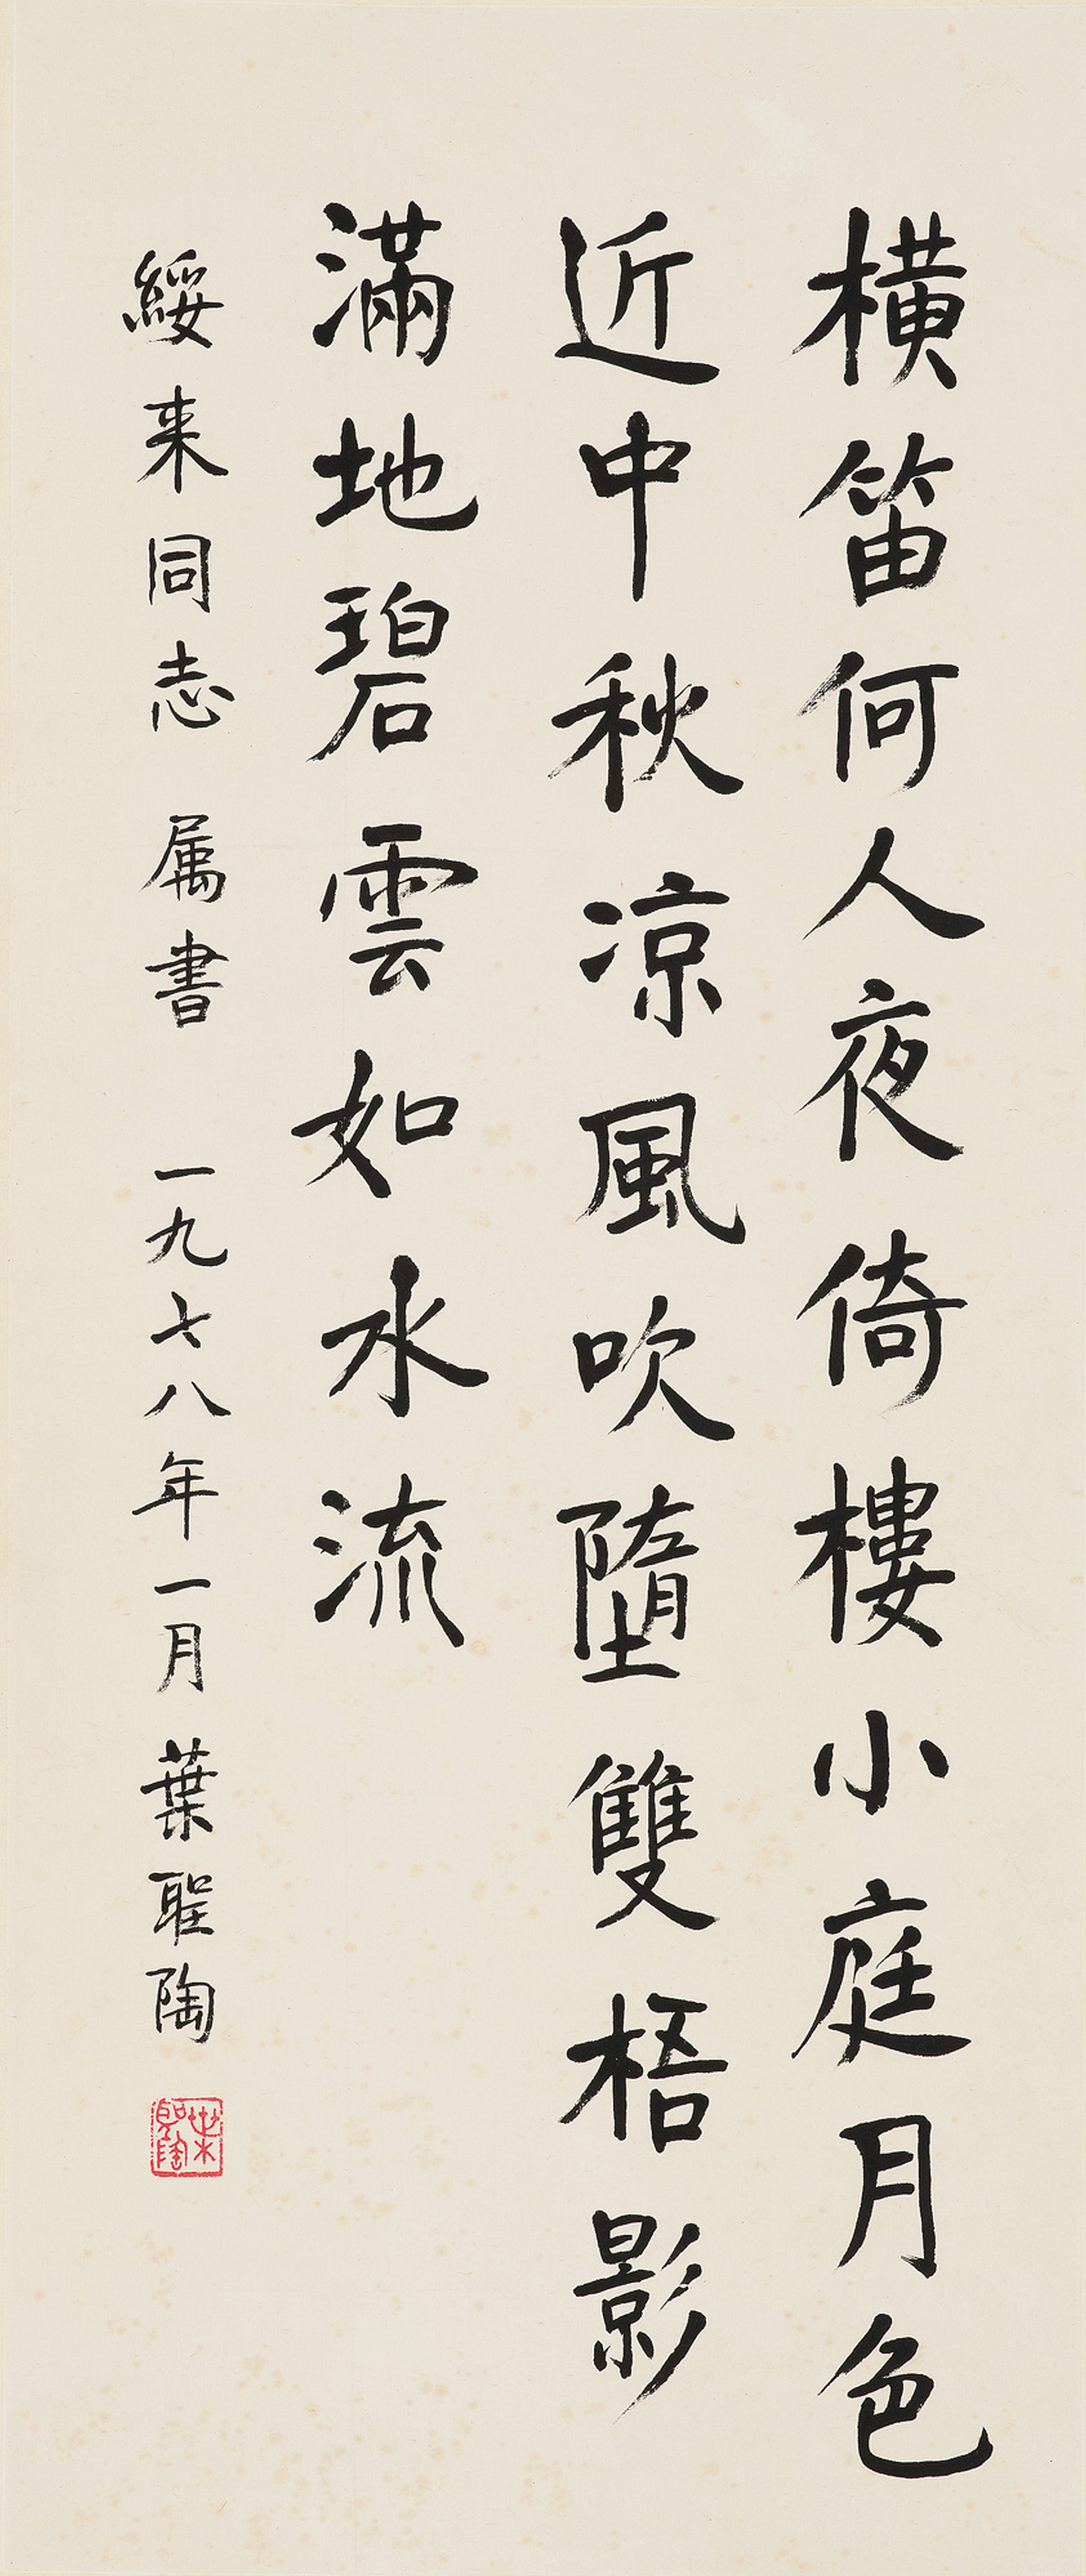 橫笛何人夜倚樓小庭月色
近中秋凉風吹墮雙梧影
滿地碧雲如水流
綏来同志 属書 一九七八年一月 葉聖陶
葉聖陶